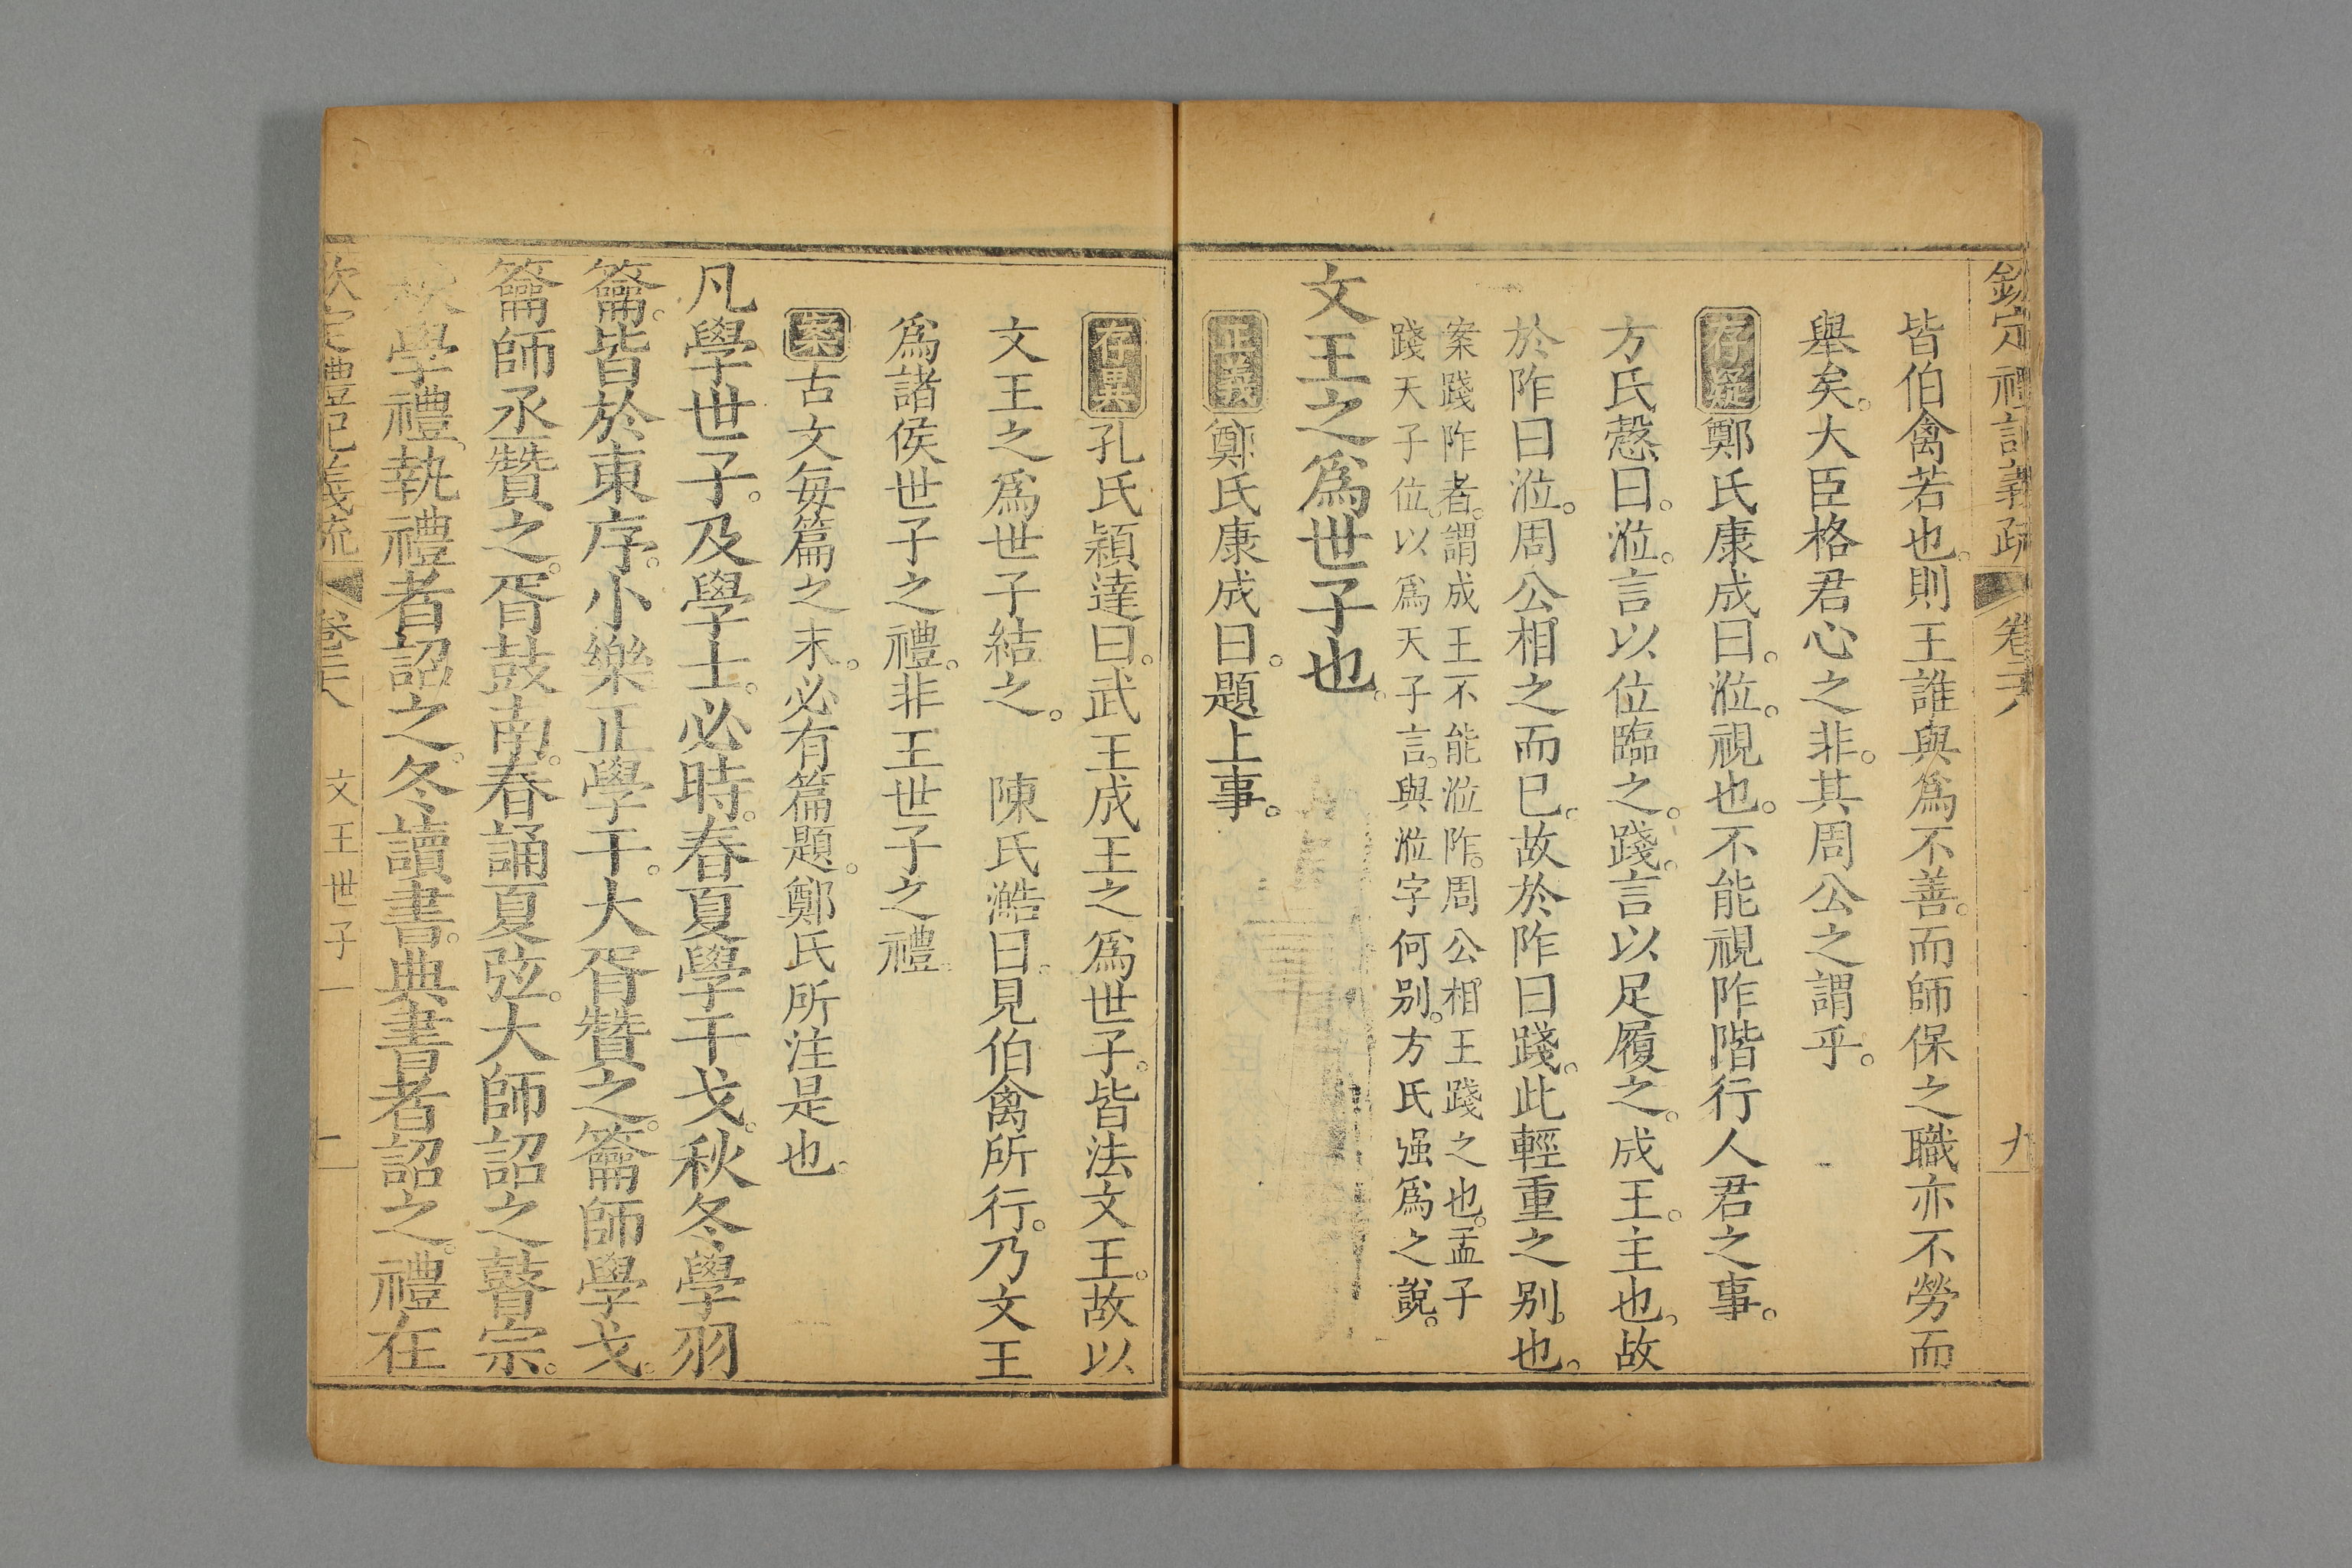 欽定禮記義疏 卷二十八 九
皆伯禽若也。則王誰與爲不善。而師保之職亦不勞而
舉矣。大臣格君心之非。其周公之謂乎。
存疑鄭氏康成曰。涖。視也。不能視阼階行人君之事。
方氏慤曰。涖。言以位臨之。踐。言以足履之。成王。主也。故
於阼曰涖。周公。相之而已。故於阼曰踐。此輕重之别也。
案踐阼者。謂成王不能涖阼。周公相王踐之也。孟子
踐天子位。以爲天子言。與涖字何别。方氏强爲之說。
文王之爲世子也。
正義鄭氏康成曰。題上事。
存異孔氏穎達曰。武王成王之爲世子。皆法文王。故以
文王之爲世子結之。 陳氏澔曰。見伯禽所行。乃文王
爲諸侯世子之禮。非王世子之禮。
案古文每篇之末。必有篇題。鄭氏所注是也。
凡學世子。及學士。必時。春夏學干戈。秋冬學羽
籥。皆於東序。小樂正學干。大胥贊之。籥師學戈。
籥師丞贊之。胥鼓南。春誦夏弦。大師詔之瞽宗。
秋學禮。執禮者詔之。冬讀書。典書者詔之。禮在
欽定禮記義疏 卷二十八 文王世子一